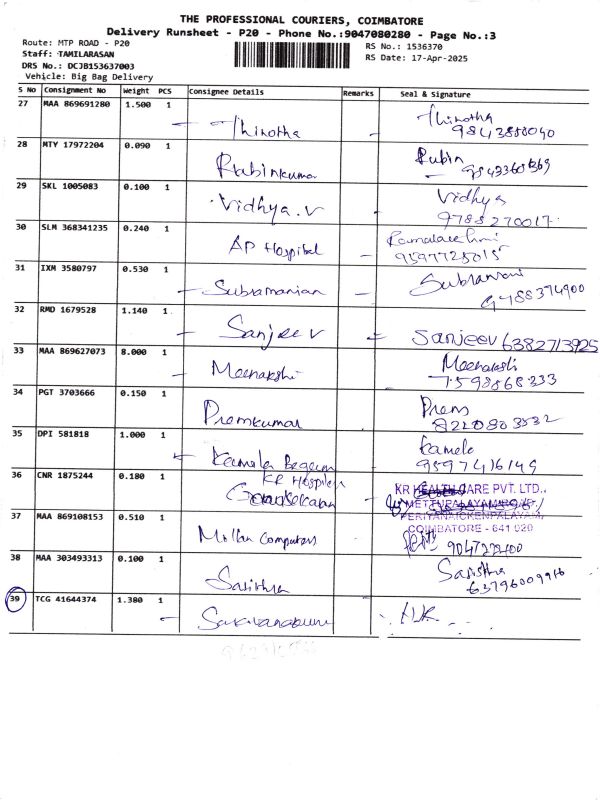 THE PROFESSIONAL COURIERS, COIMBATORE
Delivery Runsheet - P20 - Phone No.:9047080280 - Page No.:3
Route: MTP ROAD - P20
Staff: TAMILARASAN
DRS No.: DCJB153637003
Vehicle: Big Bag Delivery
RS No.: 1536370
RS Date: 17-Apr-2025
S No Consignment No Weight PCS Consignee Details Remarks Seal & Signature
27 MAA 869691280 1.500 1
28 MTY 17972204 0.090 1
Rubin
29 SKL 1005083 0.100 1
Vidhya.v Vidhya
9788270017
30 SLM 368341235 0.240 1
AP Hospital
9597725015
31 IXM 3580797 0.530 1
Subramanian
9788374900
32 RMD 1679528 1.140 1
Sanjeev Sanjeev 6382713925
33 MAA 869627073 8.000 1
Meenakshi Meenakshi
7598868333
34 PGT 3703666 0.150 1
Premkumar Prem
8220803532
35 DPI 581818 1.000 1
Kamala Begam
9597416149
36 CNR 1875244 0.180 1
KR Hospital
KR HEALTH CARE PVT. LTD.,
METTUPALAYAM ROAD,
PERIYANAICKENPALAYAM,
COIMBATORE - 641 020
37 MAA 869108153 0.510 1
Computers
38 MAA 303493313 0.100 1
39 TCG 41644374 1.380 1